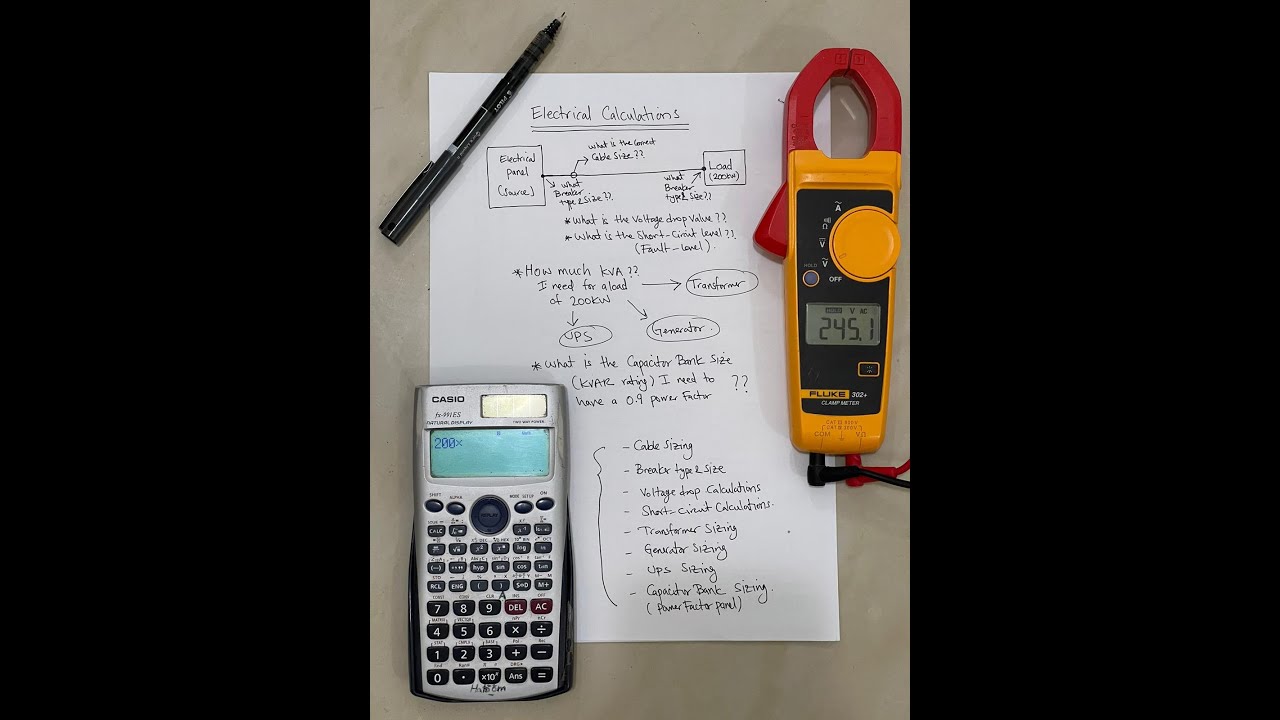 PILOT
Electrical Calculations
what is the Correct
Cable Size??
Electrical
panel
(source)
Load
(200kw)
what
Breaker
type & Size??
what
Breaker
type & Size??
* What is the Voltage drop Value??
* What is the Short-Circuit level??
(Fault-Level).
* How much KVA??
I need for a load
of 200KW
Transformer
UPS
Generator.
* What is the Capacitor Bank Size
(KVAR rating) I need to ??
have a 0.9 power Factor
- Cable Sizing
- Breaker type & Size
- Voltage drop Calculations
- Short-Circuit Calculations.
- Transformer Sizing
- Generator Sizing
- UPS Sizing
- Capacitor Bank Sizing.
(power Factor panel)
CASIO
fx-991ES
NATURAL DISPLAY TWO WAY POWER
200×
SHIFT ALPHA MODE SETUP ON
REPLAY
CALC
log ln
(−) hyp sin cos tan
RCL ENG ( ) S⇔D M+
7 8 9 DEL AC
4 5 6 × ÷
1 2 3 + −
0 . ×10ˣ Ans =
A
Ω
V
V
HOLD
OFF
HOLD V AC
245.1
FLUKE 302+
CLAMP METER
CAT III 300V
COM VΩ